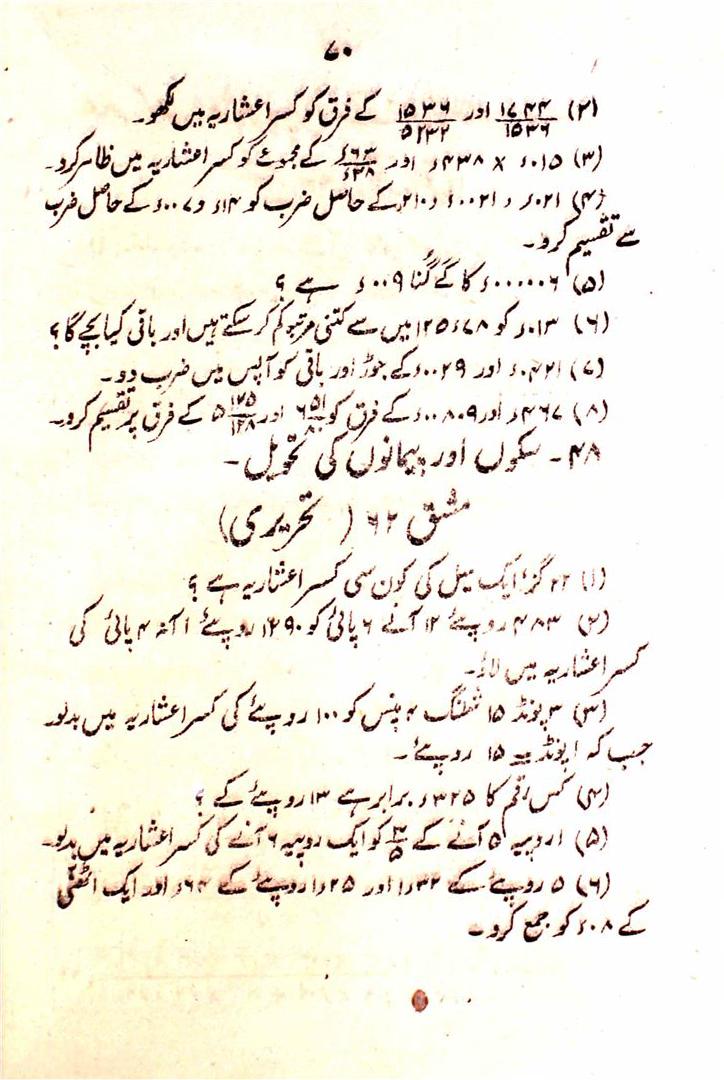 ۷۰
(۲) ۱۷۴۴/۱۵۳۶ اور ۱۵۳۶/۵۲۳۲ کے فرق کو کسر اعشاریہ میں لکھو۔
(۳) ۰۱۵ء × ۴۳۸ء اور ۶۳ء/۳۸ء کے مجموعے کو کسر اعشاریہ میں ظاہر کرو۔
(۴) ۰۲۱ء و ۰۰۲۱ء و ۲۱۰ء کے حاصل ضرب کو ۱۴ء و ۰۰۷ء کے حاصل ضرب
سے تقسیم کرو۔
(۵) ۰۰۰۰۰۶ء کا کَے گُنا ۰۰۹ء ہے ؟
(۶) ۰۱۳ء کو ۱۲۵ء۷۸ میں سے کتنی مرتبہ کم کر سکتے ہیں اور باقی کیا بچے گا؟
(۷) ۰۴۲۱ء اور ۰۰۲۹ء کے جوڑ اور باقی کو آپس میں ضرب دو۔
(۸) ۴۶۷ء اور ۰۰۸۰۹ء کے فرق کو ۶ ۵۱/۸۰ اور ۵ ۱۷۵/۱۲۸ کے فرق پر تقسیم کرو۔
۴۸۔ سکوں اور پیمانوں کی تحویل۔
مشق ۶۲ (تحریری)
(۱) ۲۲ گز، ایک میل کی کون سی کسر اعشاریہ ہے ؟
(۲) ۴۸۳ روپے ۱۲ آنے ۶ پائی کو ۱۲۹۰ روپے ۱ آنہ ۴ پائی کی
کسر اعشاریہ میں لاؤ۔
(۳) ۳ پونڈ ۱۵ شلنگ ۴ پنس کو ۱۰۰ روپے کی کسر اعشاریہ میں بدلو
جب کہ ۱ پونڈ = ۱۵ روپے۔
(۴) کس رقم کا ۳۲۵ء برابر ہے ۱۳ روپے کے ؟
(۵) ۱ روپیہ ۵ آنے کے ۳/۵ کو ایک روپیہ ۶ آنے کی کسر اعشاریہ میں بدلو۔
(۶) ۵ روپے کے ۱ء۳۲ اور ۱ء۲۵ روپے کے ۶۴ء اور ایک اٹھنی
کے ۰۸ء کو جمع کرو۔